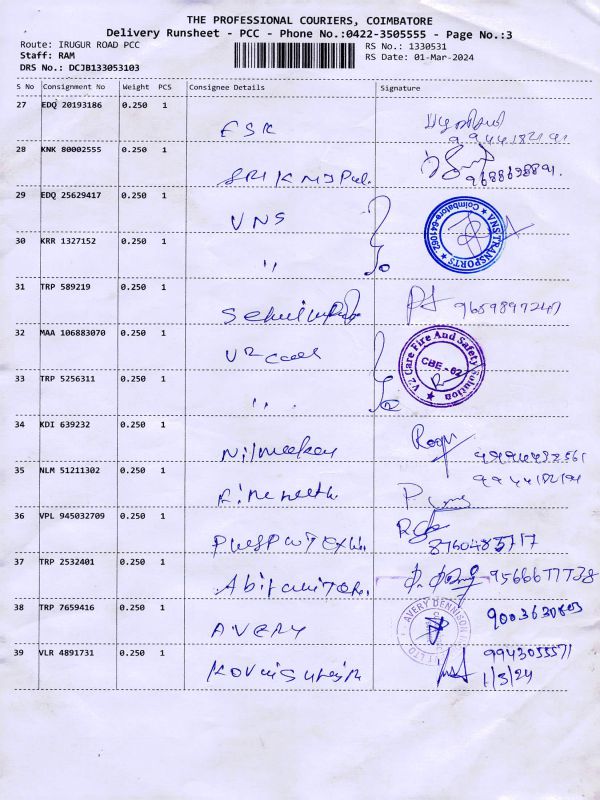 THE PROFESSIONAL COURIERS, COIMBATORE
Delivery Runsheet - PCC - Phone No.:0422-3505555 - Page No.:3
Route: IRUGUR ROAD PCC RS No.: 1330531
Staff: RAM RS Date: 01-Mar-2024
DRS No.: DCJB133053103
S No Consignment No Weight PCS Consignee Details Signature
27 EDQ 20193186 0.250 1
ESK
9944182191
28 KNK 80002555 0.250 1
SRI K M J Pul.
29 EDQ 25629417 0.250 1
VNS
VNS TRANSPORTS ★ Coimbatore-641062 ★
30 KRR 1327152 0.250 1
''
31 TRP 589219 0.250 1
9659899247
32 MAA 106883070 0.250 1
V2 care
V2 Care Fire And Safety Solution ★
CBE - 62
33 TRP 5256311 0.250 1
''
34 KDI 639232 0.250 1
35 NLM 51211302 0.250 1
9944182191
36 VPL 945032709 0.250 1
8760485717
37 TRP 2532401 0.250 1
9566677738
38 TRP 7659416 0.250 1
AVERY
AVERY DENNISON
9003630803
39 VLR 4891731 0.250 1
9943055571
1/3/24